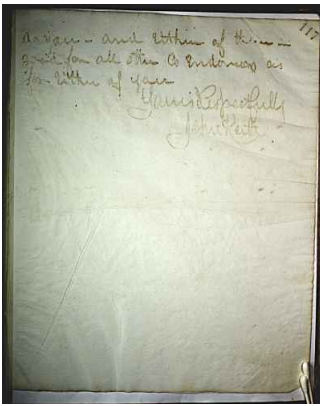 117
and Either of them
for all other Co Endorsers as
for Either of you
Yours Respectfully
John Keith